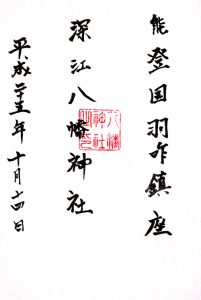 能登国羽咋鎮座
深江八幡神社
八幡神社之印
平成二十五年十月十四日